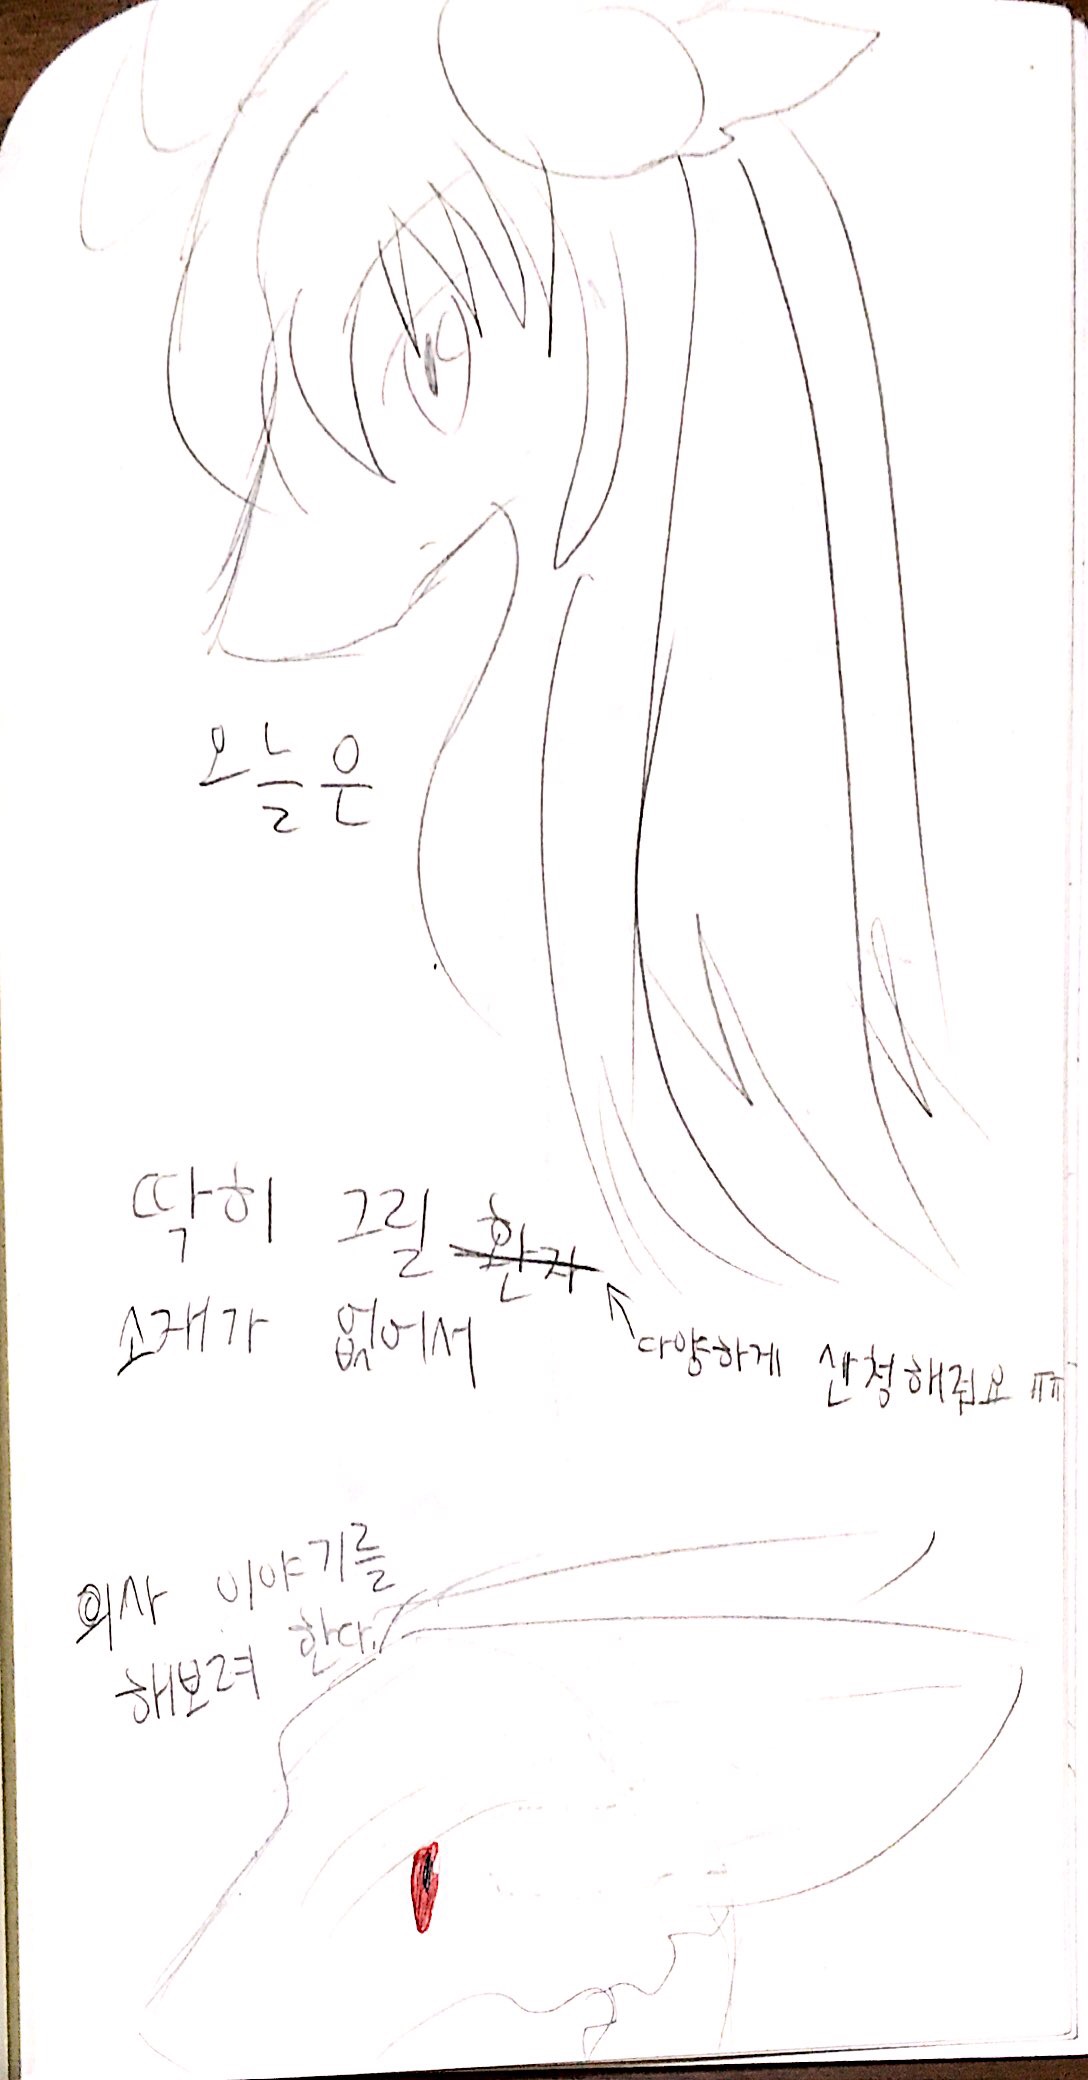 오늘은
딱히 그릴 환자
소재가 없어서
다양하게 신청해줘요 ㅠㅠ
의사 이야기를
해보려 한다.